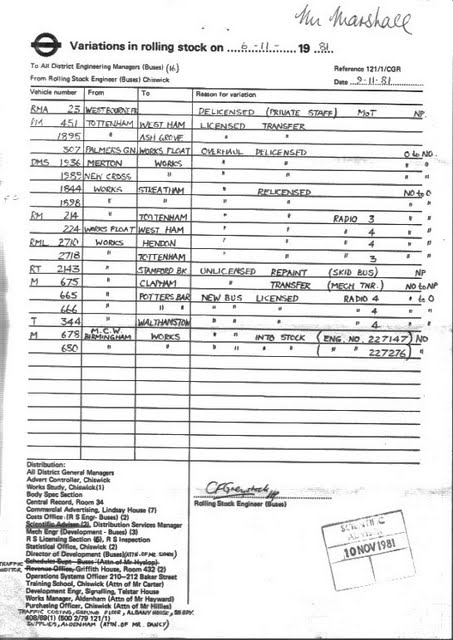 Mr Marshall
Variations in rolling stock on 6-11- 19 81.
To All District Engineering Managers (Buses) (16) Reference 121/1/CGR
From Rolling Stock Engineer (Buses) Chiswick Date 9-11-81
Vehicle number From To Reason for variation
RMA 23 WESTBOURNE PK DELICENSED (PRIVATE STAFF) MOT NP
RM 451 TOTTENHAM WEST HAM LICENSED TRANSFER
1895 " ASH GROVE " "
307 PALMERS GN. WORKS FLOAT OVERHAUL DELICENSED O to NO
DMS 1936 MERTON WORKS " " "
1989 NEW CROSS " " " "
1844 WORKS STREATHAM " RELICENSED NO to O
1898 " " " " "
RM 214 " TOTTENHAM " " RADIO 3 "
224 WORKS FLOAT WEST HAM " " " 4 "
RML 2710 WORKS HENDON " " " 4 "
2718 " TOTTENHAM " " " 3 "
RT 2143 " STAMFORD BK. UNLICENSED REPAINT (SKID BUS) NP
M 675 " CLAPHAM " TRANSFER (MECH TNR.) NO to NP
665 " POTTERS BAR NEW BUS LICENSED RADIO 4 " to O
666 " " " " " " 4 "
T 344 " WALTHAMSTOW " " " " 4 "
M 678 M.C.W. BIRMINGHAM WORKS " " INTO STOCK (ENG. NO. 227147) NO
650 " " " " " " ( " " 227276) "
Distribution:
All District General Managers
Advert Controller, Chiswick
Works Study, Chiswick (1)
Body Spec Section
Central Record, Room 34
Commercial Advertising, Lindsay House (7)
Costs Office (R S Engr- Buses) (2)
Scientific Adviser (2), Distribution Services Manager
Mech Engr (Development - Buses) (3)
R S Licensing Section (6), R S Inspection
Statistical Office, Chiswick (2)
Director of Development (Buses)
Schedules Dept - Buses (Attn of Mr Hyslop)
Revenue Office, Griffith House, Room 432 (2)
Operations Systems Officer 210–212 Baker Street
Training School, Chiswick (Attn of Mr Carter)
Development Engr, Signalling, Telstar House
Works Manager, Aldenham (Attn of Mr Hayward)
Purchasing Officer, Chiswick (Attn of Mr Hillies)
TRAFFIC COSTING, GROUND FLOOR, ALBANY HOUSE, 55 BDY.
408/89(1) (500 2/79 121/1)
SUPPLIES, ALDENHAM (ATTN. OF MR. DANCY)
Rolling Stock Engineer (Buses)
SCIENTIFIC ADVISER
10 NOV 1981